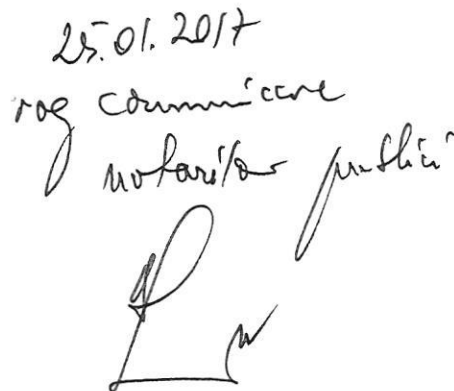 25.01.2017
rog comunicare
notarilor publici